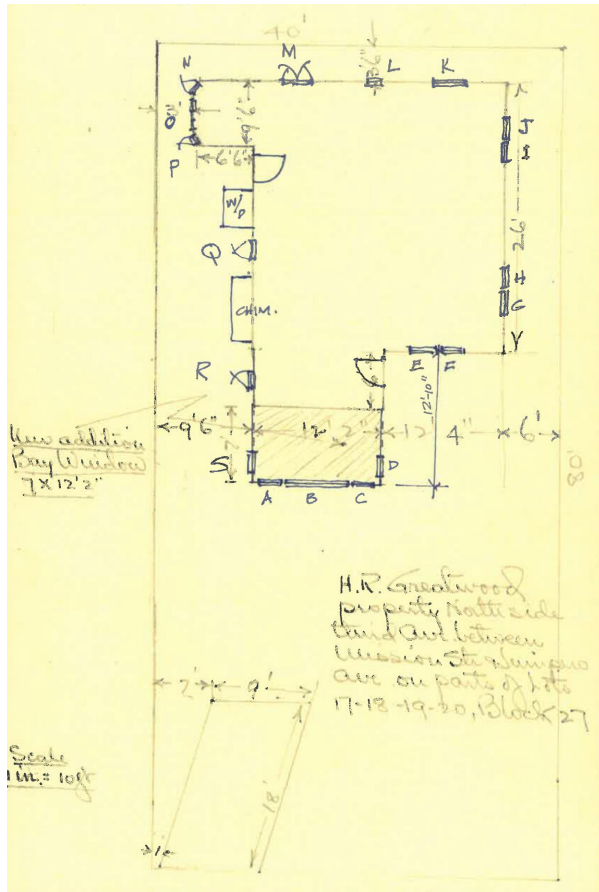 40'
N
M
L
K
3'6"
O
9'6"
J
I
P
6'6"
W/D
26'
Q
CHIM.
H
G
R
E
F
12'-10"
9'6"
12'2"
12'4"
6'
7'
New addition
Bay Window
7 X 12'2"
S
D
A
B
C
80'
H.R. Greatwood
property North side
third Ave. between
Mission St &
Ave. on parts of Lots
17-18-19-20, Block 27
9'
18'
Scale
1 in. = 10 ft